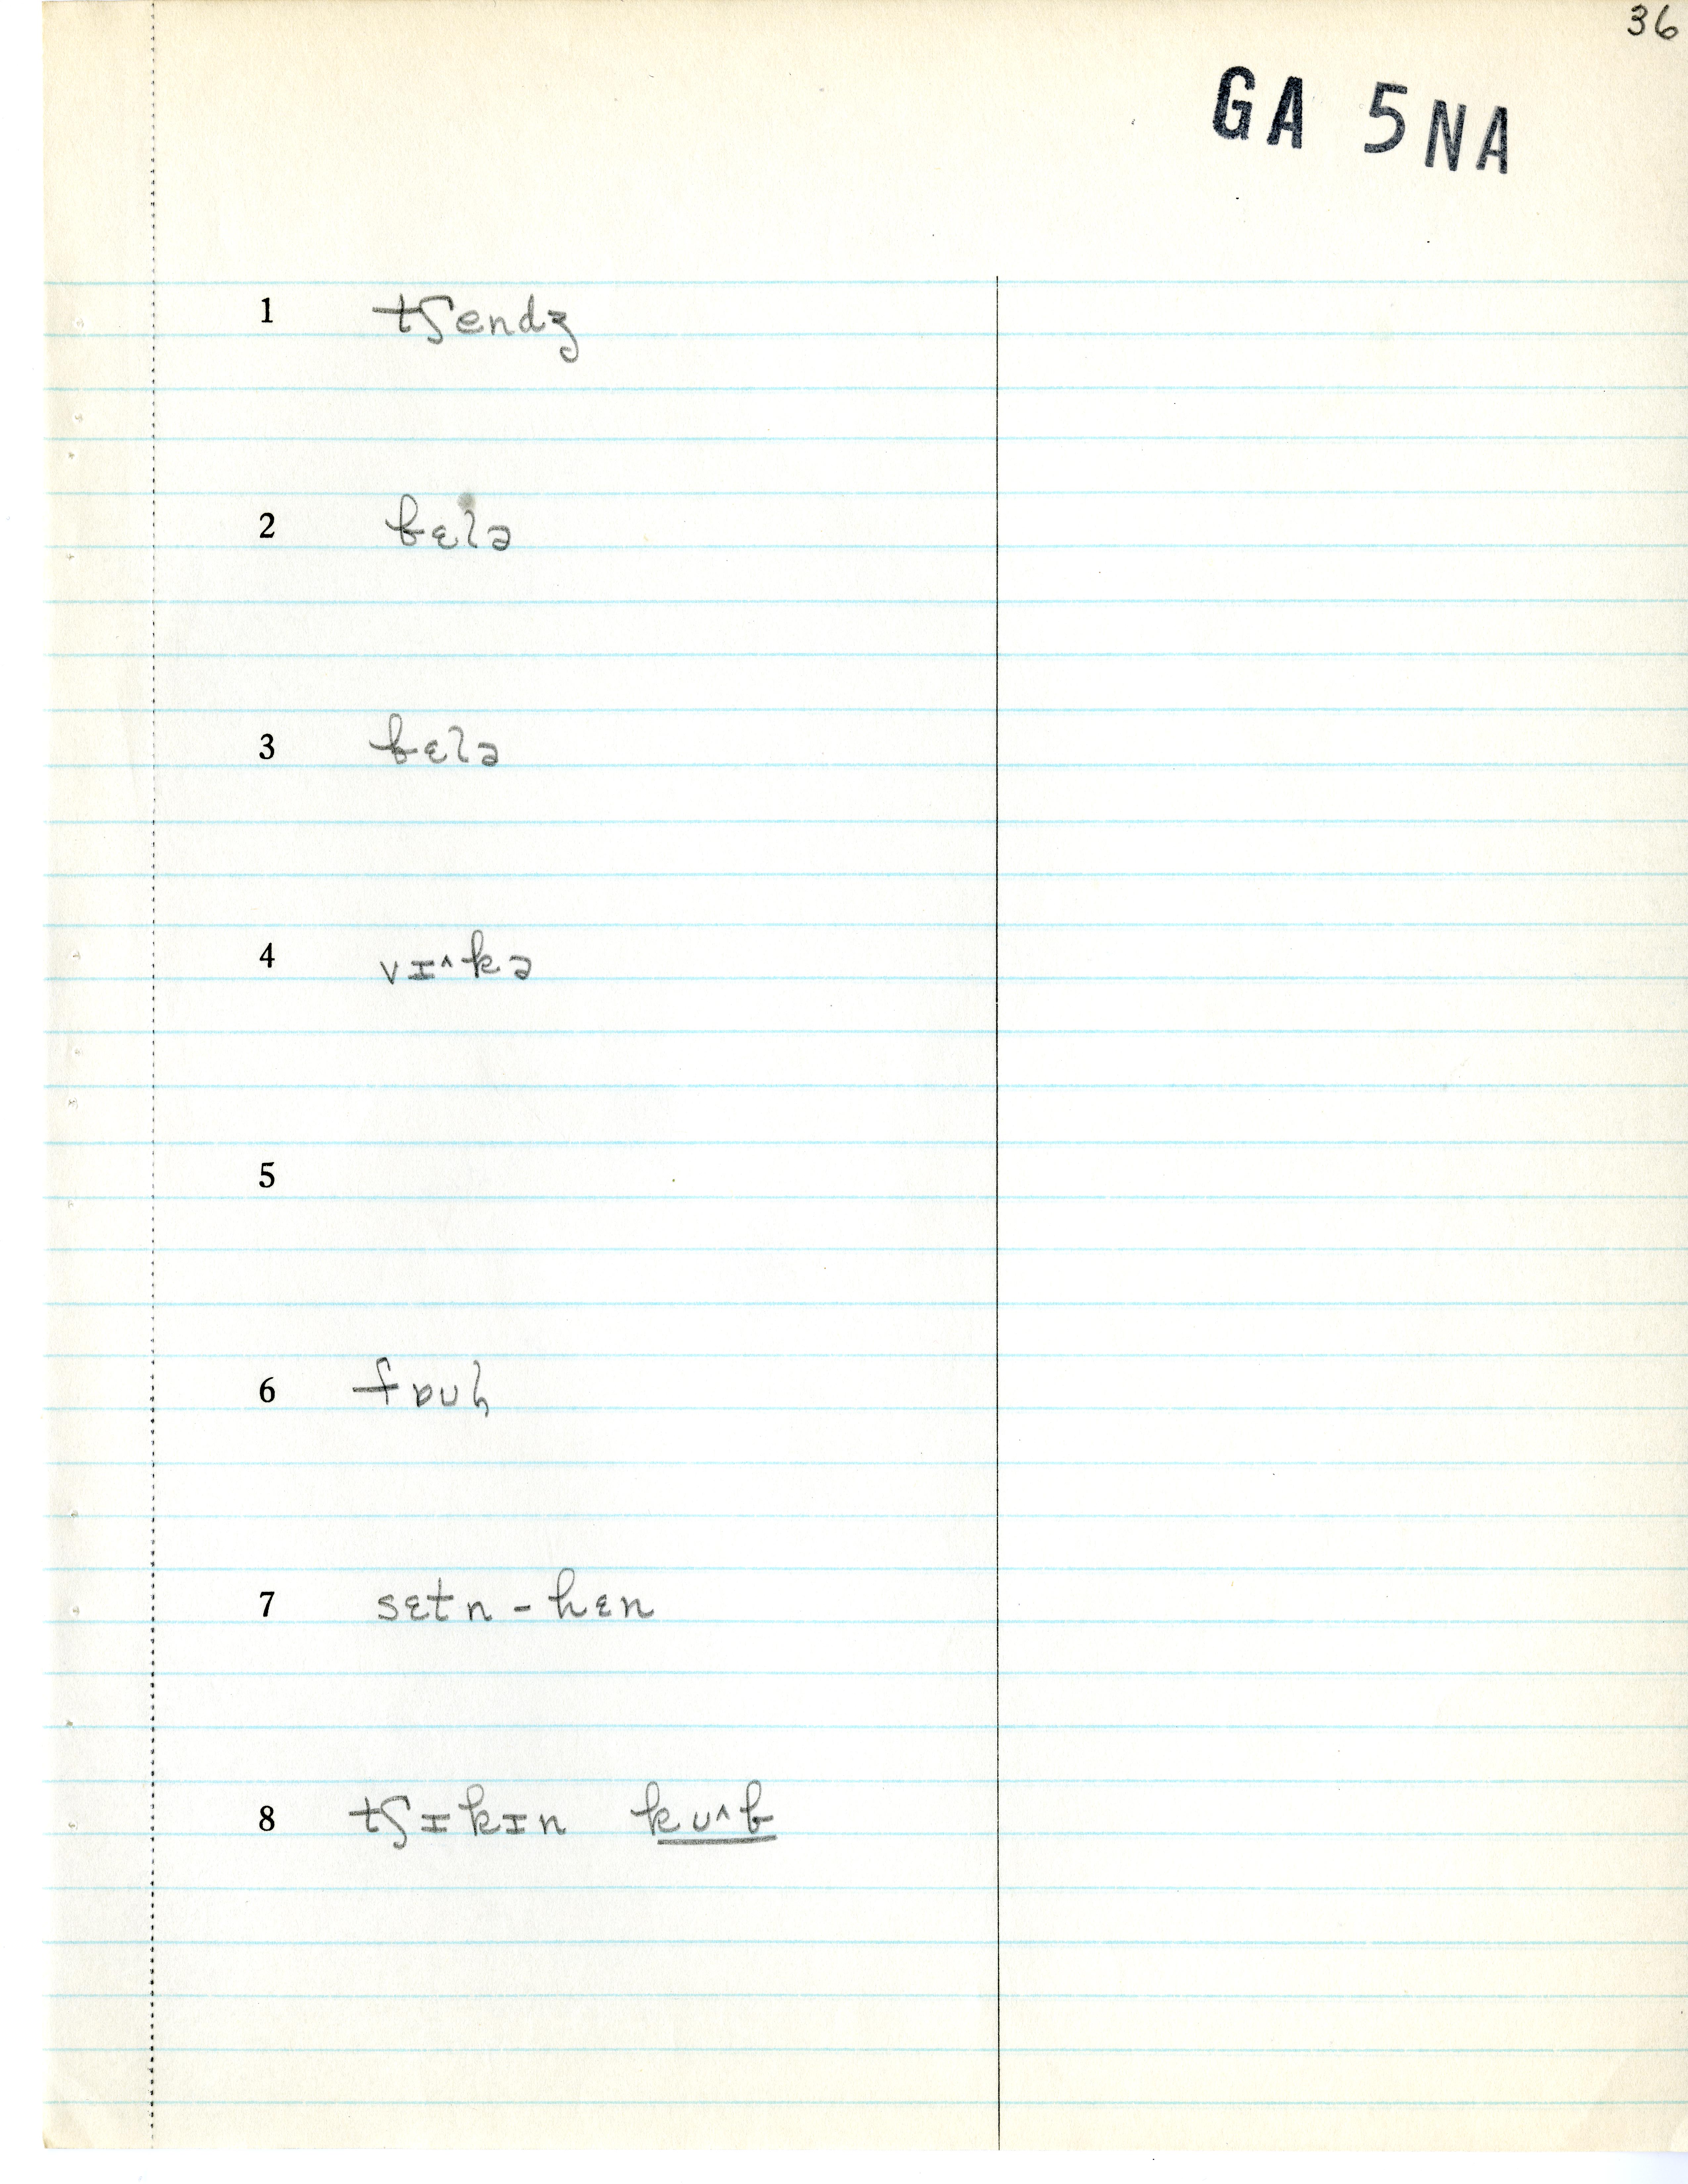 36
GA 5NA
1 tʃendʒ
2 bɛlə
3 bɛlə
4 vɪ^kə
5
6 fɒuɫ
7 sɛtn - hɛn
8 tʃɪkɪn ku^b